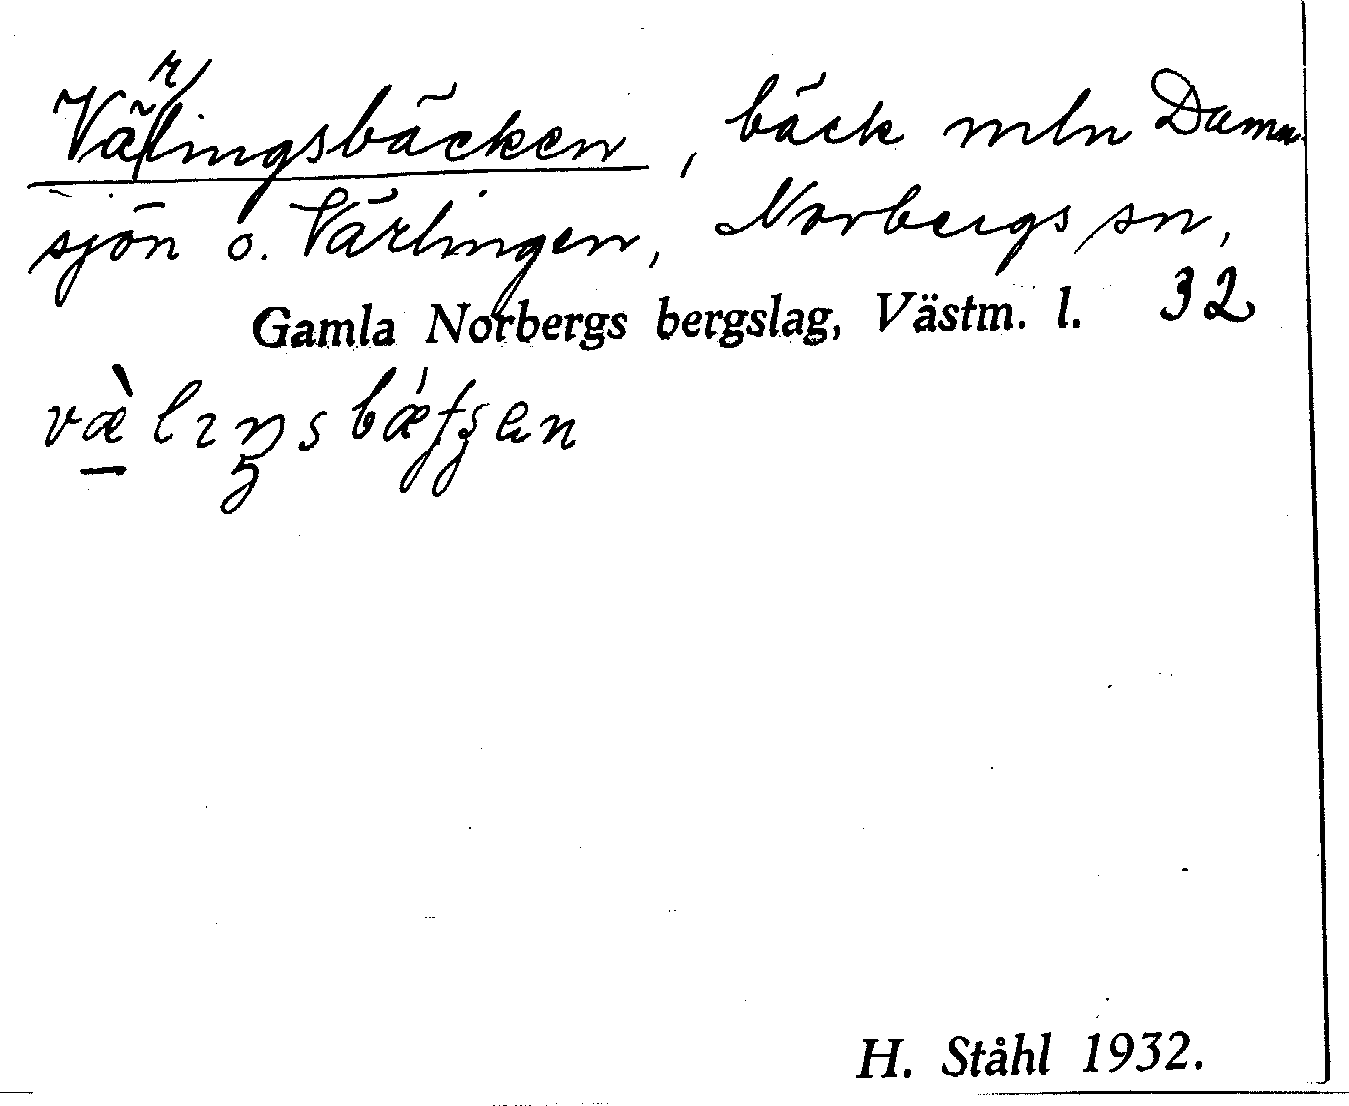 Värlingsbäcken, bäck mln Damm-
sjön o. Värlingen, Norbergs sn,
Gamla Norbergs bergslag, Västm. l. 32
væ̀lıŋsbǽʈʂɛn
H. Ståhl 1932.